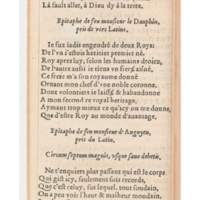 Là fault aller, à Dieu dy à la terre.
Epitaphe de feu monsieur le Dauphin,
pris de vers Latins.
Ie fus iadis engendré de deux Roys:
De l'un i'estois heritier premier né,
Roy apres luy, selon les humains droicts,
De l'autre aussi ie tiens un fier
Ce frere m'a son royaume donné
Ornant mon chef d'une noble coronne,
Dont volontiers ie laisse & habandonne
A mon second ce royal heritage,
Aymant trop mieux ce qu'icy on me donne,
Que d'estre Roy au monde d'auantage.
Epitaphe de feu monsieur d'Anguyen,
pris du Latin.
Circum septum magnis, usque sane debetis.
Ne t'enquiers plus passant qui est le corps
Qui gist icy, seulement sois records,
Que c'est celuy, sur lequel, tout soudain,
On a peu voir l'heur & malheur mondain.